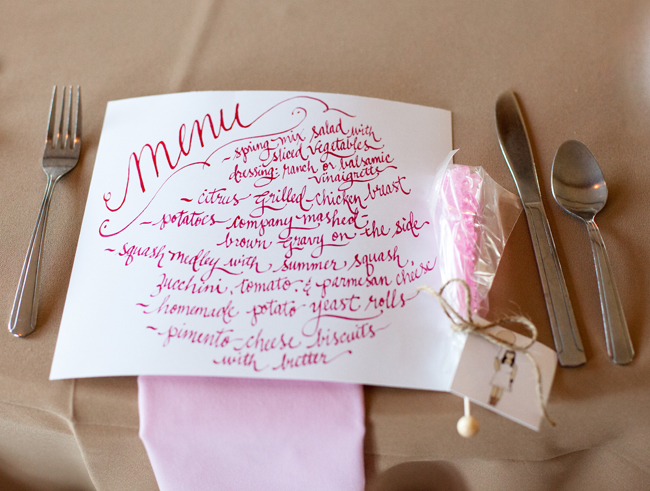 menu
~ spring mix salad with
sliced vegetables
dressing: ranch or balsamic
vinaigrette
~ citrus grilled chicken breast
~ potatoes company mashed
brown gravy on the side
~ squash medley with summer squash
zucchini, tomato & parmesan cheese
~ homemade potato yeast rolls
~ pimento-cheese biscuits
with butter